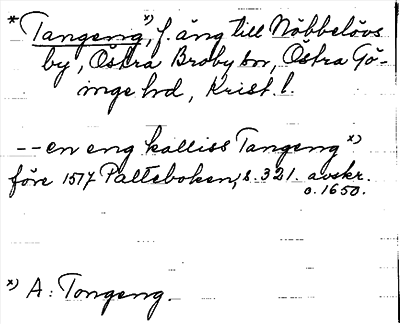 *Tangeng x), f. äng till Nöbbelövs
by, Östra Broby sn, Östra Gö-
inge hd, Krist. l.
-- en eng kalliss Tangeng x)
före 1517 Palteboken, s. 321. avskr.
o. 1650.
x) A: Tongeng.